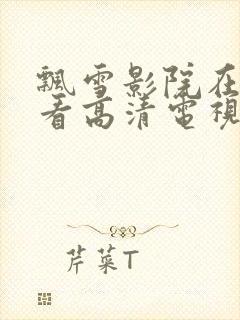 飄雪影院在
看高清電視
芹菜T